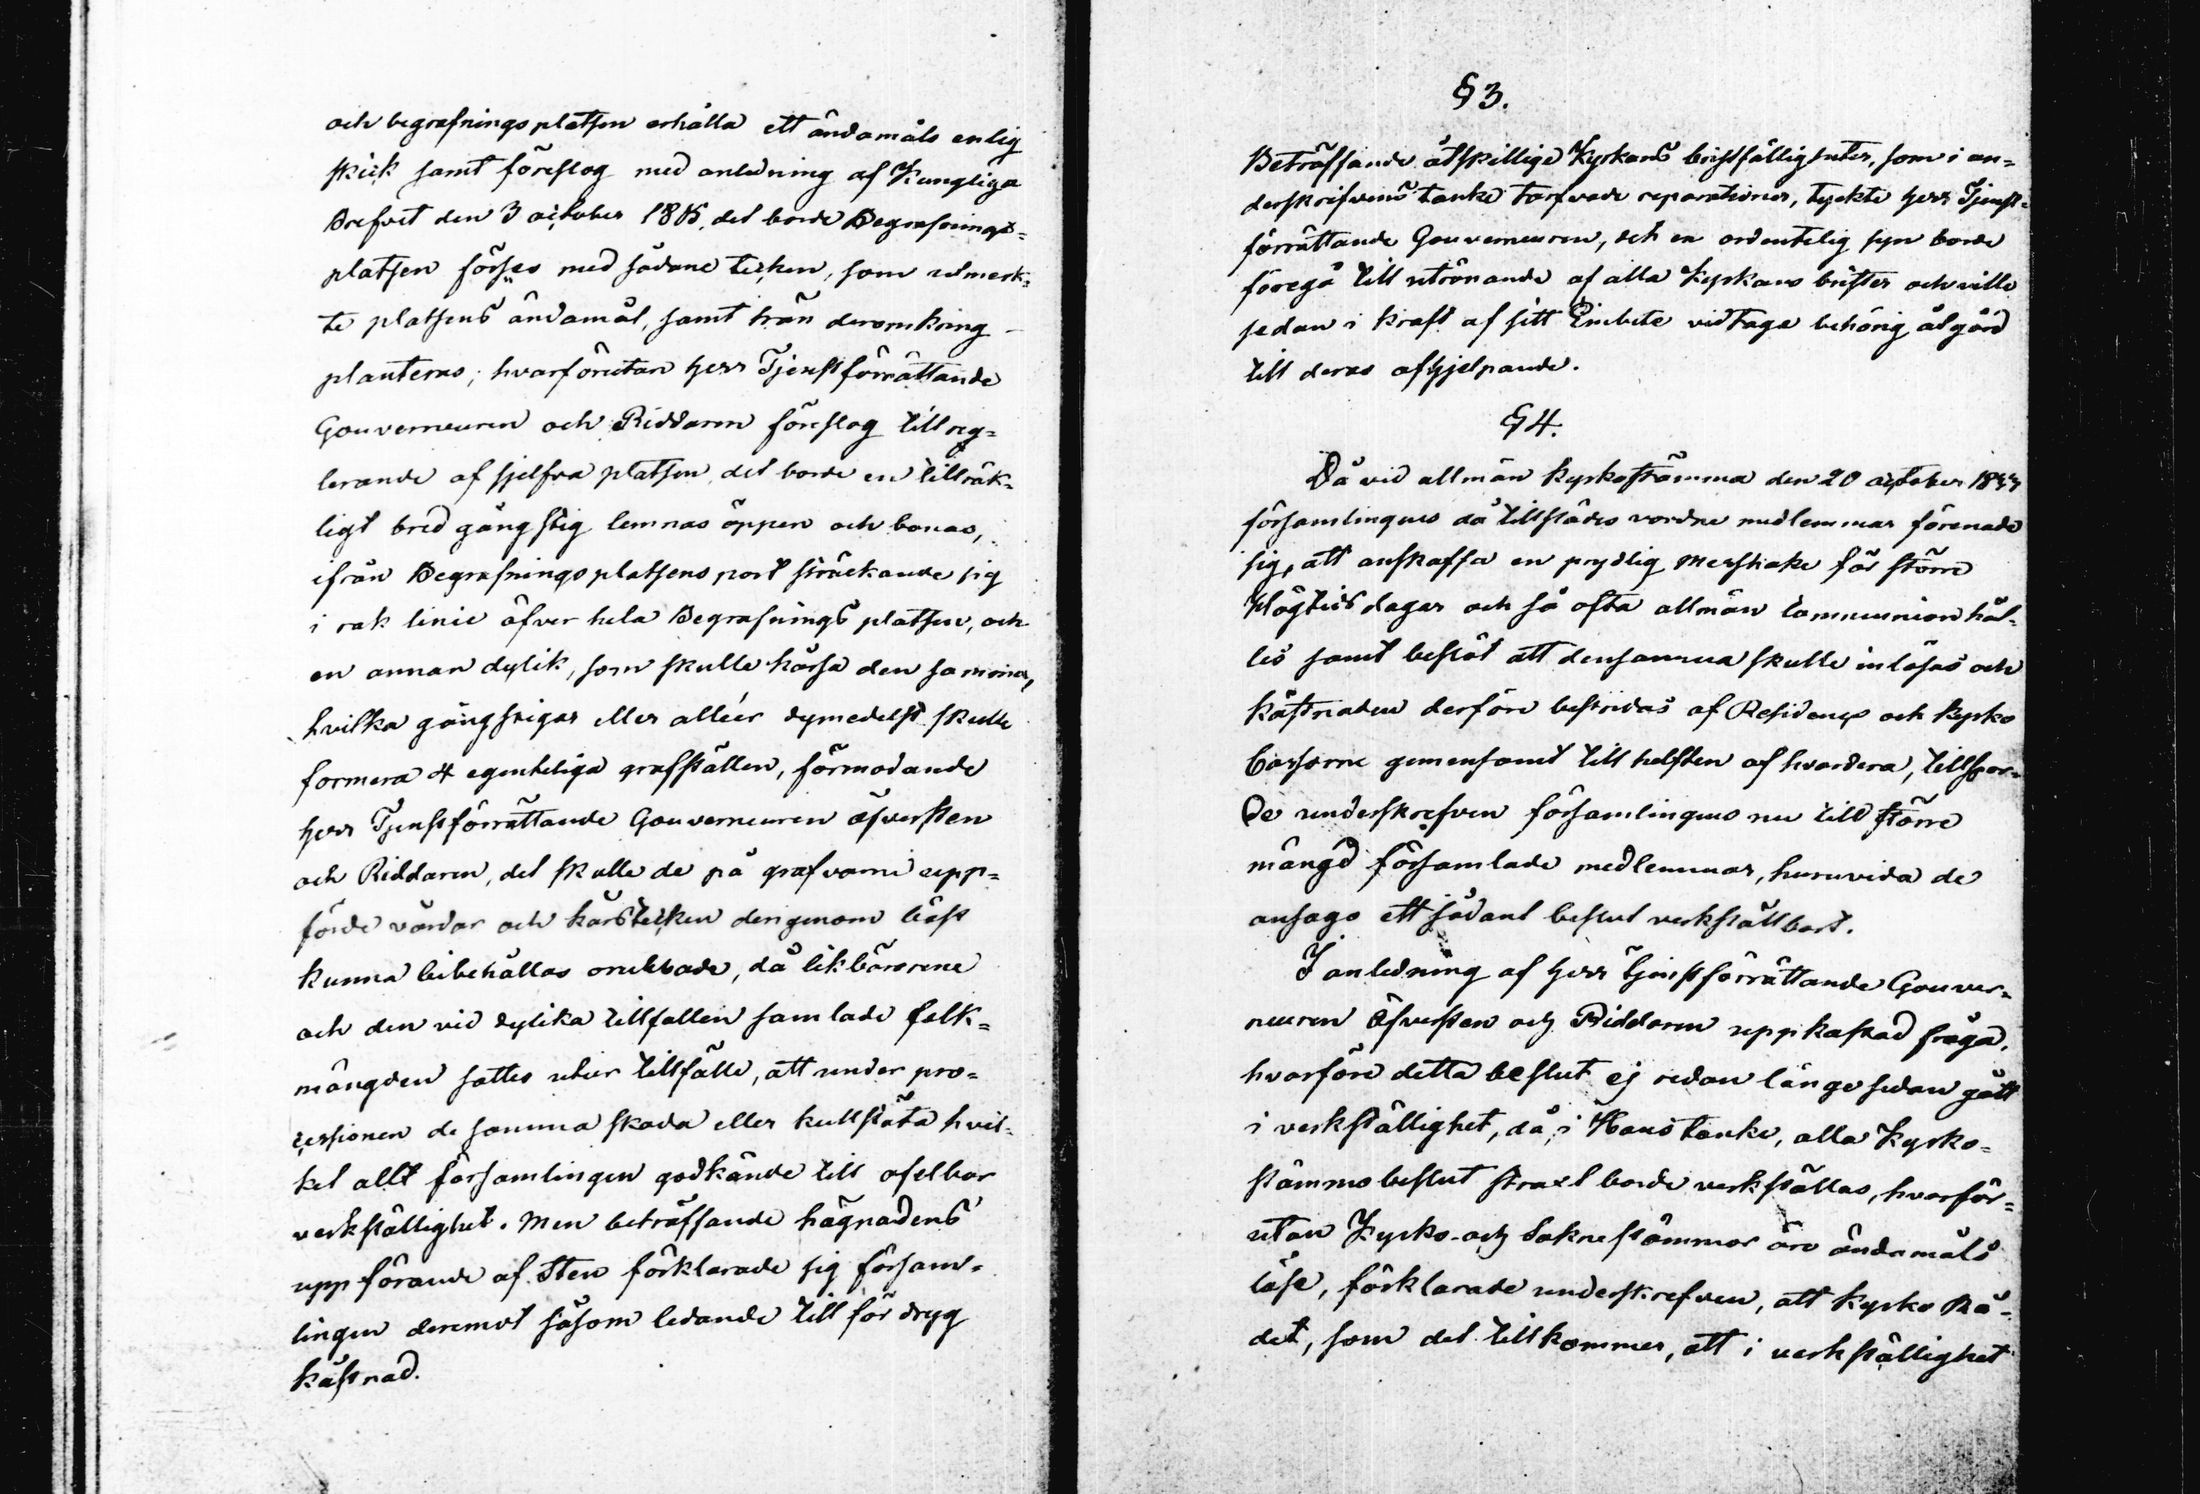 och begrafningsplatsen erhålla ett ändamåls enlig
skick samt föreslog med anledning af Kungliga
Brefvet den 3 october 1815, det borde Begrafnings-
platsen förses med sådane tecken, som utmerk-
te platsens ändamål, samt trän deromkring
planteras; hvarförutan Herr Tjenstförrättande
Gouverneuren och Riddaren föreslog till reg-
lerande af sjelfva platsen, det borde en tillräk-
ligt bred gångstig lemnas öppen och banas,
ifrån Begrafningsplatsens port sträckande sig
i rak linie öfver hela Begrafnings platsen, och
en annan dylik, som skulle kårsa den samma,
hvilka gångstigar eller alléer dymedelst skulle
formera 4 egenteliga grafställen, förmodande
Herr Tjenstförrättande Gouverneuren öfversten
och Riddaren, det skulle de på grafvarne upp-
förde vårdar och kårstecken derigenom bäst
kunna bibehållas orubbade, då likbärarene
och den vid dylika tillfällen samlade folk-
mängden sattes utur tillfälle, att under pro-
cessionen de samma skada eller kullstöta hvil-
ket allt församlingen godkände till ofelbar
verkställighet. Men beträffande hägnadens
uppförande af Sten förklarade sig försam-
lingen deremot såsom ledande till för dryg
kåstnad.
§ 3.
Beträffande åtskillige Kyrkans bristfälligheter, som i un-
derskrifvens tanke tarfvade reparationer, tyckte Herr Tjenst-
förrättande Gouverneuren, det en ordentelig syn borde
föregå till utrönande af alla Kyrkans brister och ville
sedan i kraft af sitt Embete vidtaga behörig åtgärd
till deras afhjelpande.
§ 4.
Då vid allmän kyrkostämma den 20 october
församlingens då tillstädes vordne medlemmar förenade
sig, att anskaffa en prydlig Messhake för större
Högtids dagar och så ofta allmän Communion hål-
les samt beslöt att densamma skulle inlösas och
kåstnaden derföre bestridas af Residens och kyrko
Cassorne gemensamt till helften af hvardera, tillspor-
de underskrefven församlingens nu till större
mängd församlade medlemmar, huruvida de
ansago ett sådant beslut verkställbart.
I anledning af Herr Tjenstförrättande Gouver-
neuren Öfversten och Riddaren uppkastad fråga,
hvarföre detta beslut ej redan länge sedan gått
i verkställighet, då, i Hans tanke, alla Kyrko-
stämmobeslut straxt borde verkställas, hvarför-
utan Kyrko- och Sokne stämmor äro ändamåls
löse, förklarade underskrefven, att kyrko Rå-
det, som det tillkommer, att i verkställighet